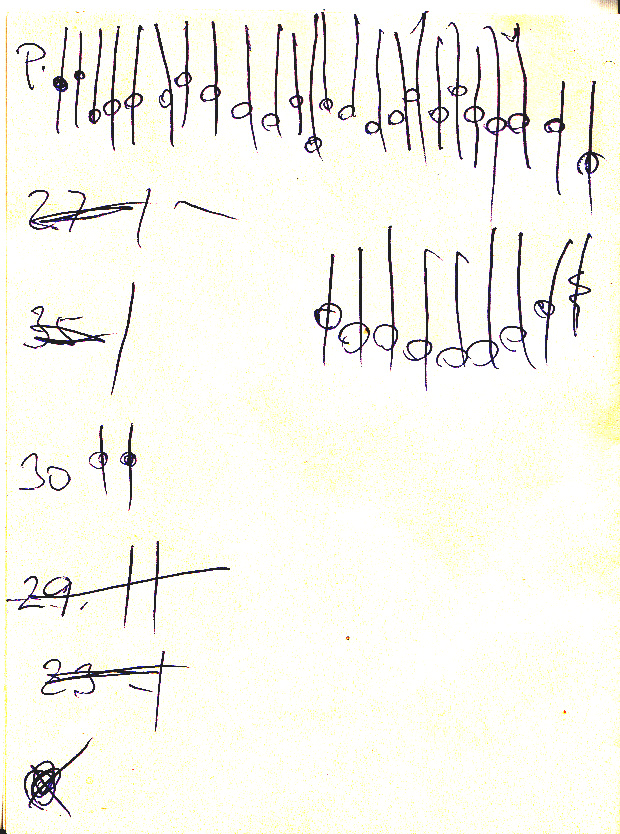 P.
27
35
30
29.
23